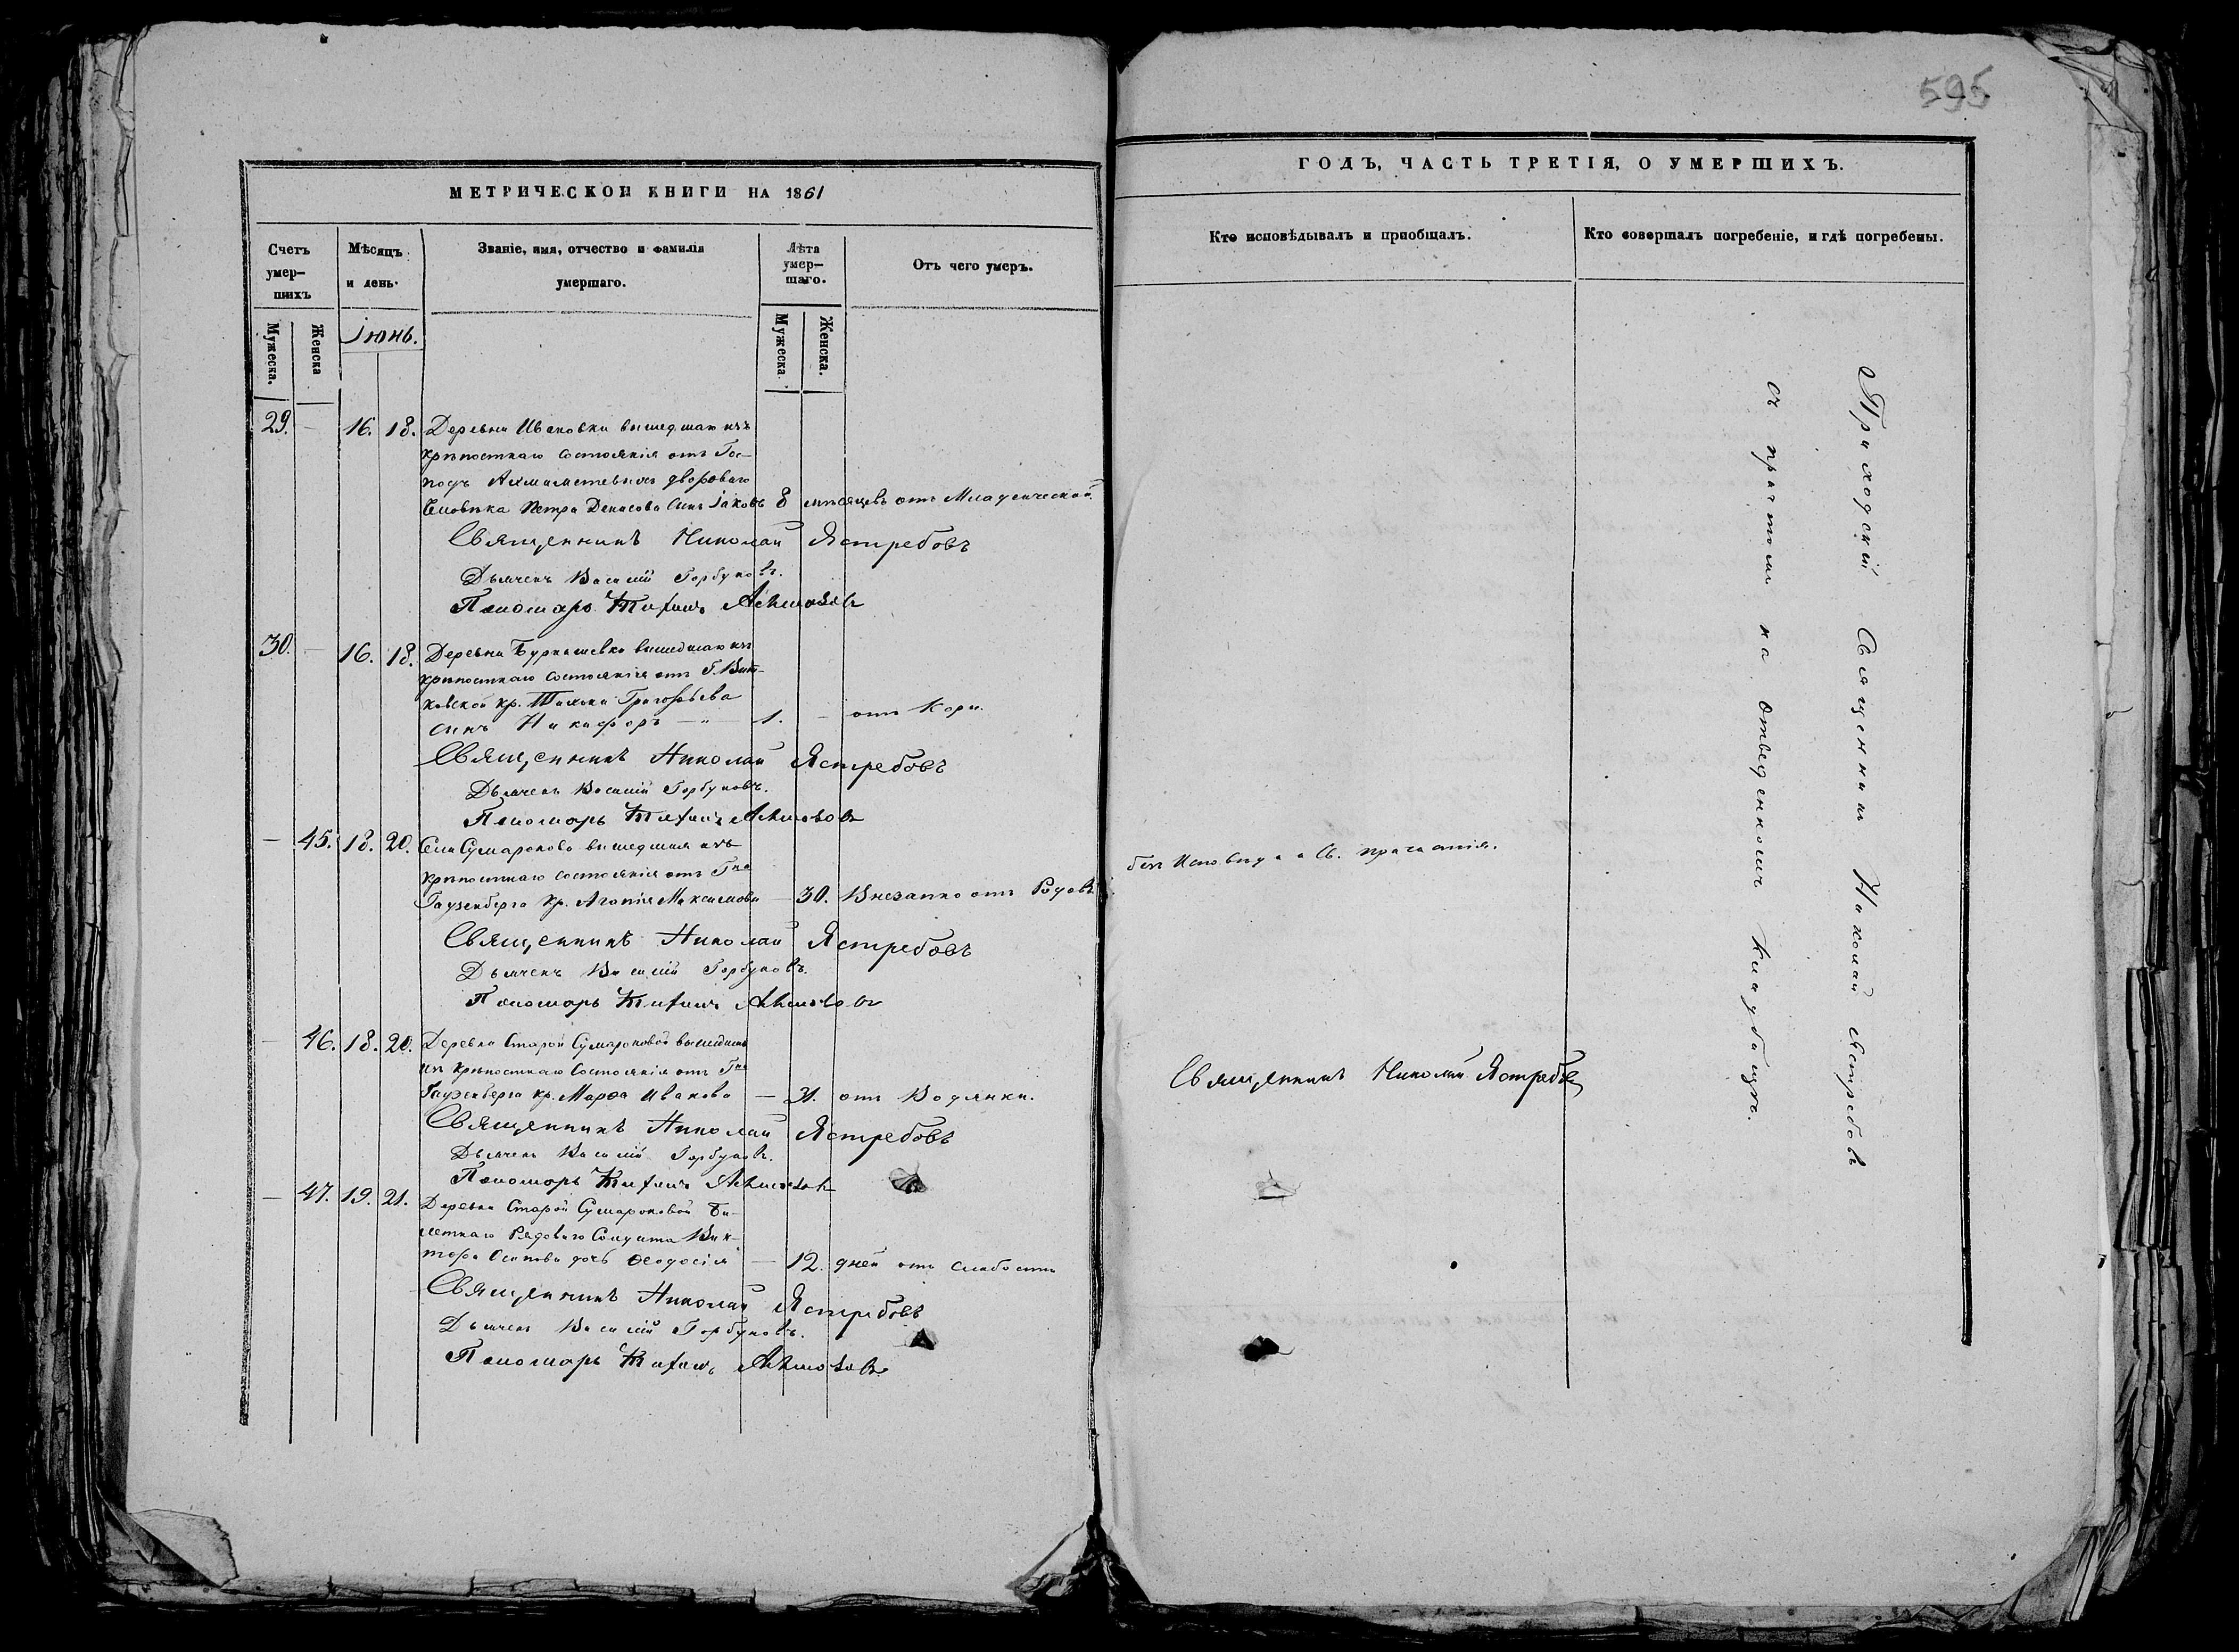 595
МЕТРИЧЕСКОЙ КНИГИ НА 1861
Счетъ умер-шихъ
Мѣсяцъ и день.
Званіе, имя, отчество и фамилія умершаго.
Лѣта умер-шаго.
Отъ чего умеръ.
Мужеска.
Женска
Іюнь.
Мужеска.
Женска.
29. — 16. 18. Деревни Ивановки вышедшаго изъ
крѣпостнаго состоянія отъ Гос-
подъ дворового
Человѣка Петра Денисова сынъ Іаковъ 8 мѣсяцевъ отъ Младенческой.
Священникъ Николай Ястребовъ
Дьячекъ Василій Горбуновъ.
Пономарь Тихонъ
30. — 16. 18. Деревни Бурнашевки вышедшаго изъ
крѣпостнаго состоянія отъ Г.
кр. Григорьева
сынъ Никифоръ — „ — 1. — отъ Кори.
Священникъ Николай Ястребовъ
Дьячекъ Василій Горбуновъ.
Пономарь Тихонъ
— 45. 18. 20. Села Сумарокова вышедшая изъ
крѣпостнаго состоянія отъ Гна
Гаузенберга кр. Агапія Максимова — 30. Внезапно отъ Родовъ
Священникъ Николай Ястребовъ
Дьячекъ Василій Горбуновъ.
Пономарь Тихонъ
— 46. 18. 20. Деревни Старой Сумароковой вышедшая
изъ крѣпостнаго состоянія отъ Гна
Гаузенберга кр. Марѳа Иванова — 31. отъ Водянки.
Священникъ Николай Ястребовъ
Дьячекъ Василій Горбуновъ.
Пономарь Тихонъ
— 47. 19. 21. Деревни Старой Сумароковой Би-
летнаго Рядоваго Солдата Вик-
тора Осипова дочь Ѳеодосія — 12. дней отъ слабости
Священникъ Николай Ястребовъ
Дьячекъ Василій Горбуновъ.
Пономарь Тихонъ
ГОДЪ, ЧАСТЬ ТРЕТІЯ, О УМЕРШИХЪ.
Кто исповѣдывалъ и пріобщалъ.
Кто совершалъ погребеніе, и гдѣ погребены.
безъ Исповѣди и Св. причастія.
Священникъ Николай Ястребовъ
Приходскій Священникъ Николай Ястребовъ
съ причтомъ на отведенномъ кладбищѣ.